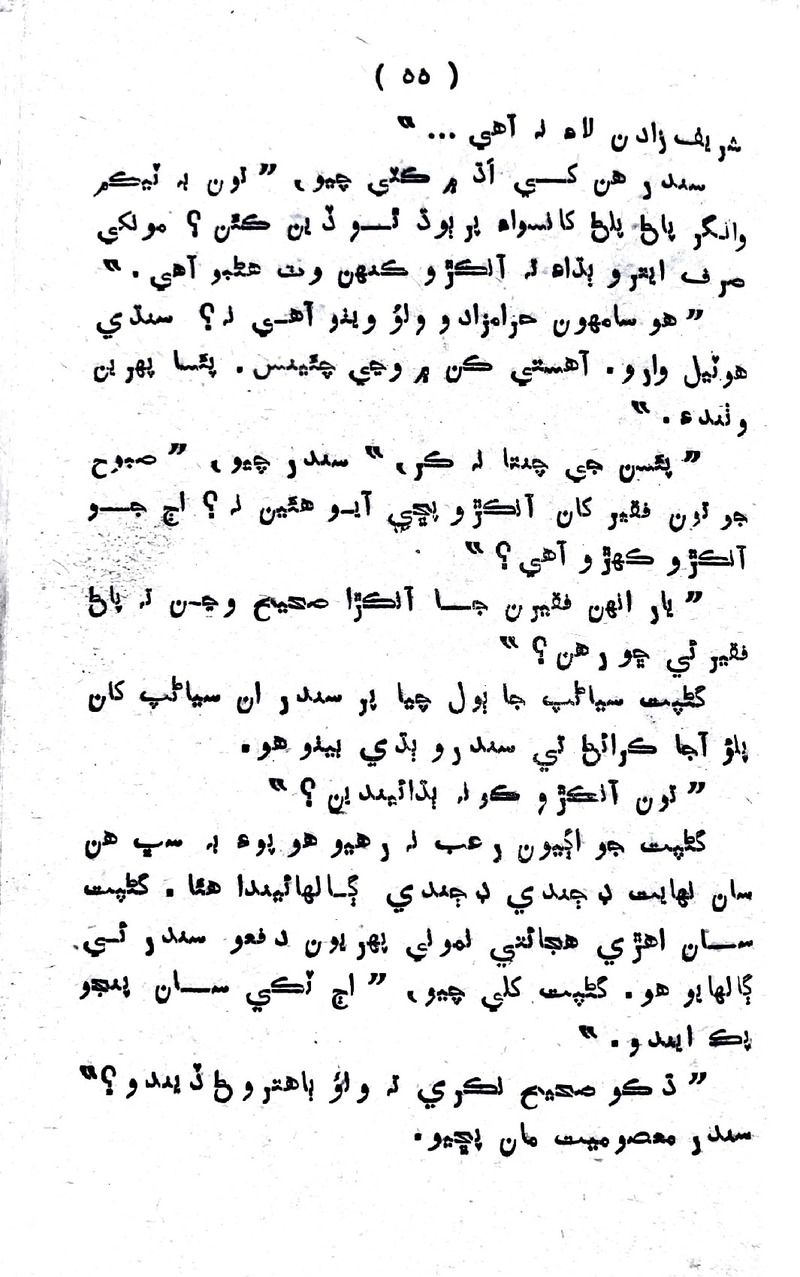 ( ۵۵ )
شريف زادن لاءِ نہ آهي ... “
سندر هن کــي اَڌ ۾ ڪٽي چيو، ” تون بہ ٽيڪم
وانگر پاڻ پلڻ کانسواءِ پرٻوڌ ٿــو ڏين ڪٿن ؟ مونکي
صرف ايترو ٻڌاءِ تہ آنڪڙو ڪنهن وٽ هڻبو آهي . “
” هو سامهون حرامزادو ولؤ ويٺو آهـي نہ؟ سنڌي
هوٽيل وارو. آهستي ڪن ۾ وڃي چئينس. پئسا پهرين
وٺندء . “
” پئسن جي چنتا نہ ڪر، “ سندر چيو، ” صبوح
جو تون فقير کان آنڪڙو پڇي آيـو هئين نہ؟ اڄ جــو
آنڪڙو ڪهڙو آهي؟ “
” يار انهن فقيرن جــا آنڪڙا صحيح وڃـن تہ پاڻ
فقير ئي ڇو رهن؟ “
گڻپت سياڻپ جا ٻول چيا پر سندر ان سياڻپ کان
پلؤ آجا ڪرائڻ ئي سندرو ٻڌي بيٺو هو.
” تون آنڪڙو ڪونہ ٻڌائيندين؟ “
گڻپت جو اڳيون رعب نہ رهيو هو پوءِ بہ سڀ هن
سان نهايت ڊڄندي ڊڄندي ڳـالهائيندا هئا . گڻپت
ســان اهڙي هڃائتي نموني پهريون دفعو سندر ئــي
ڳالهايو هو. گڻپت کلي چيو، ” اڄ ٽڪي ســان پنجو
پڪ ايندو. “
” ڌڪو صحيح نڪري تہ ولؤ ٻاهتر وڻ ڏيندو؟“
سندر معصوميت مان پڇيو.